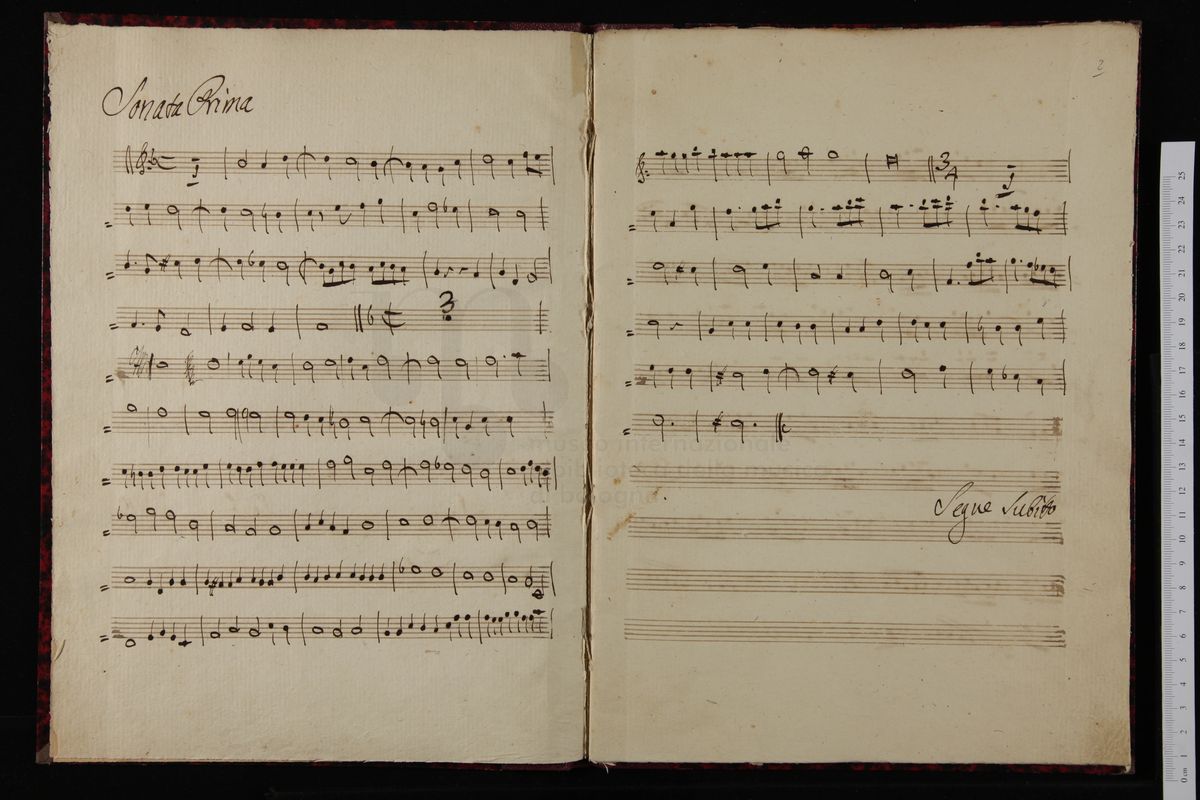 Sonata Prima
3
2
3
4
Segue Subito
museo internazionale
e biblioteca della musica
di bologna
0 cm 1 2 3 4 5 6 7 8 9 10 11 12 13 14 15 16 17 18 19 20 21 22 23 24 25